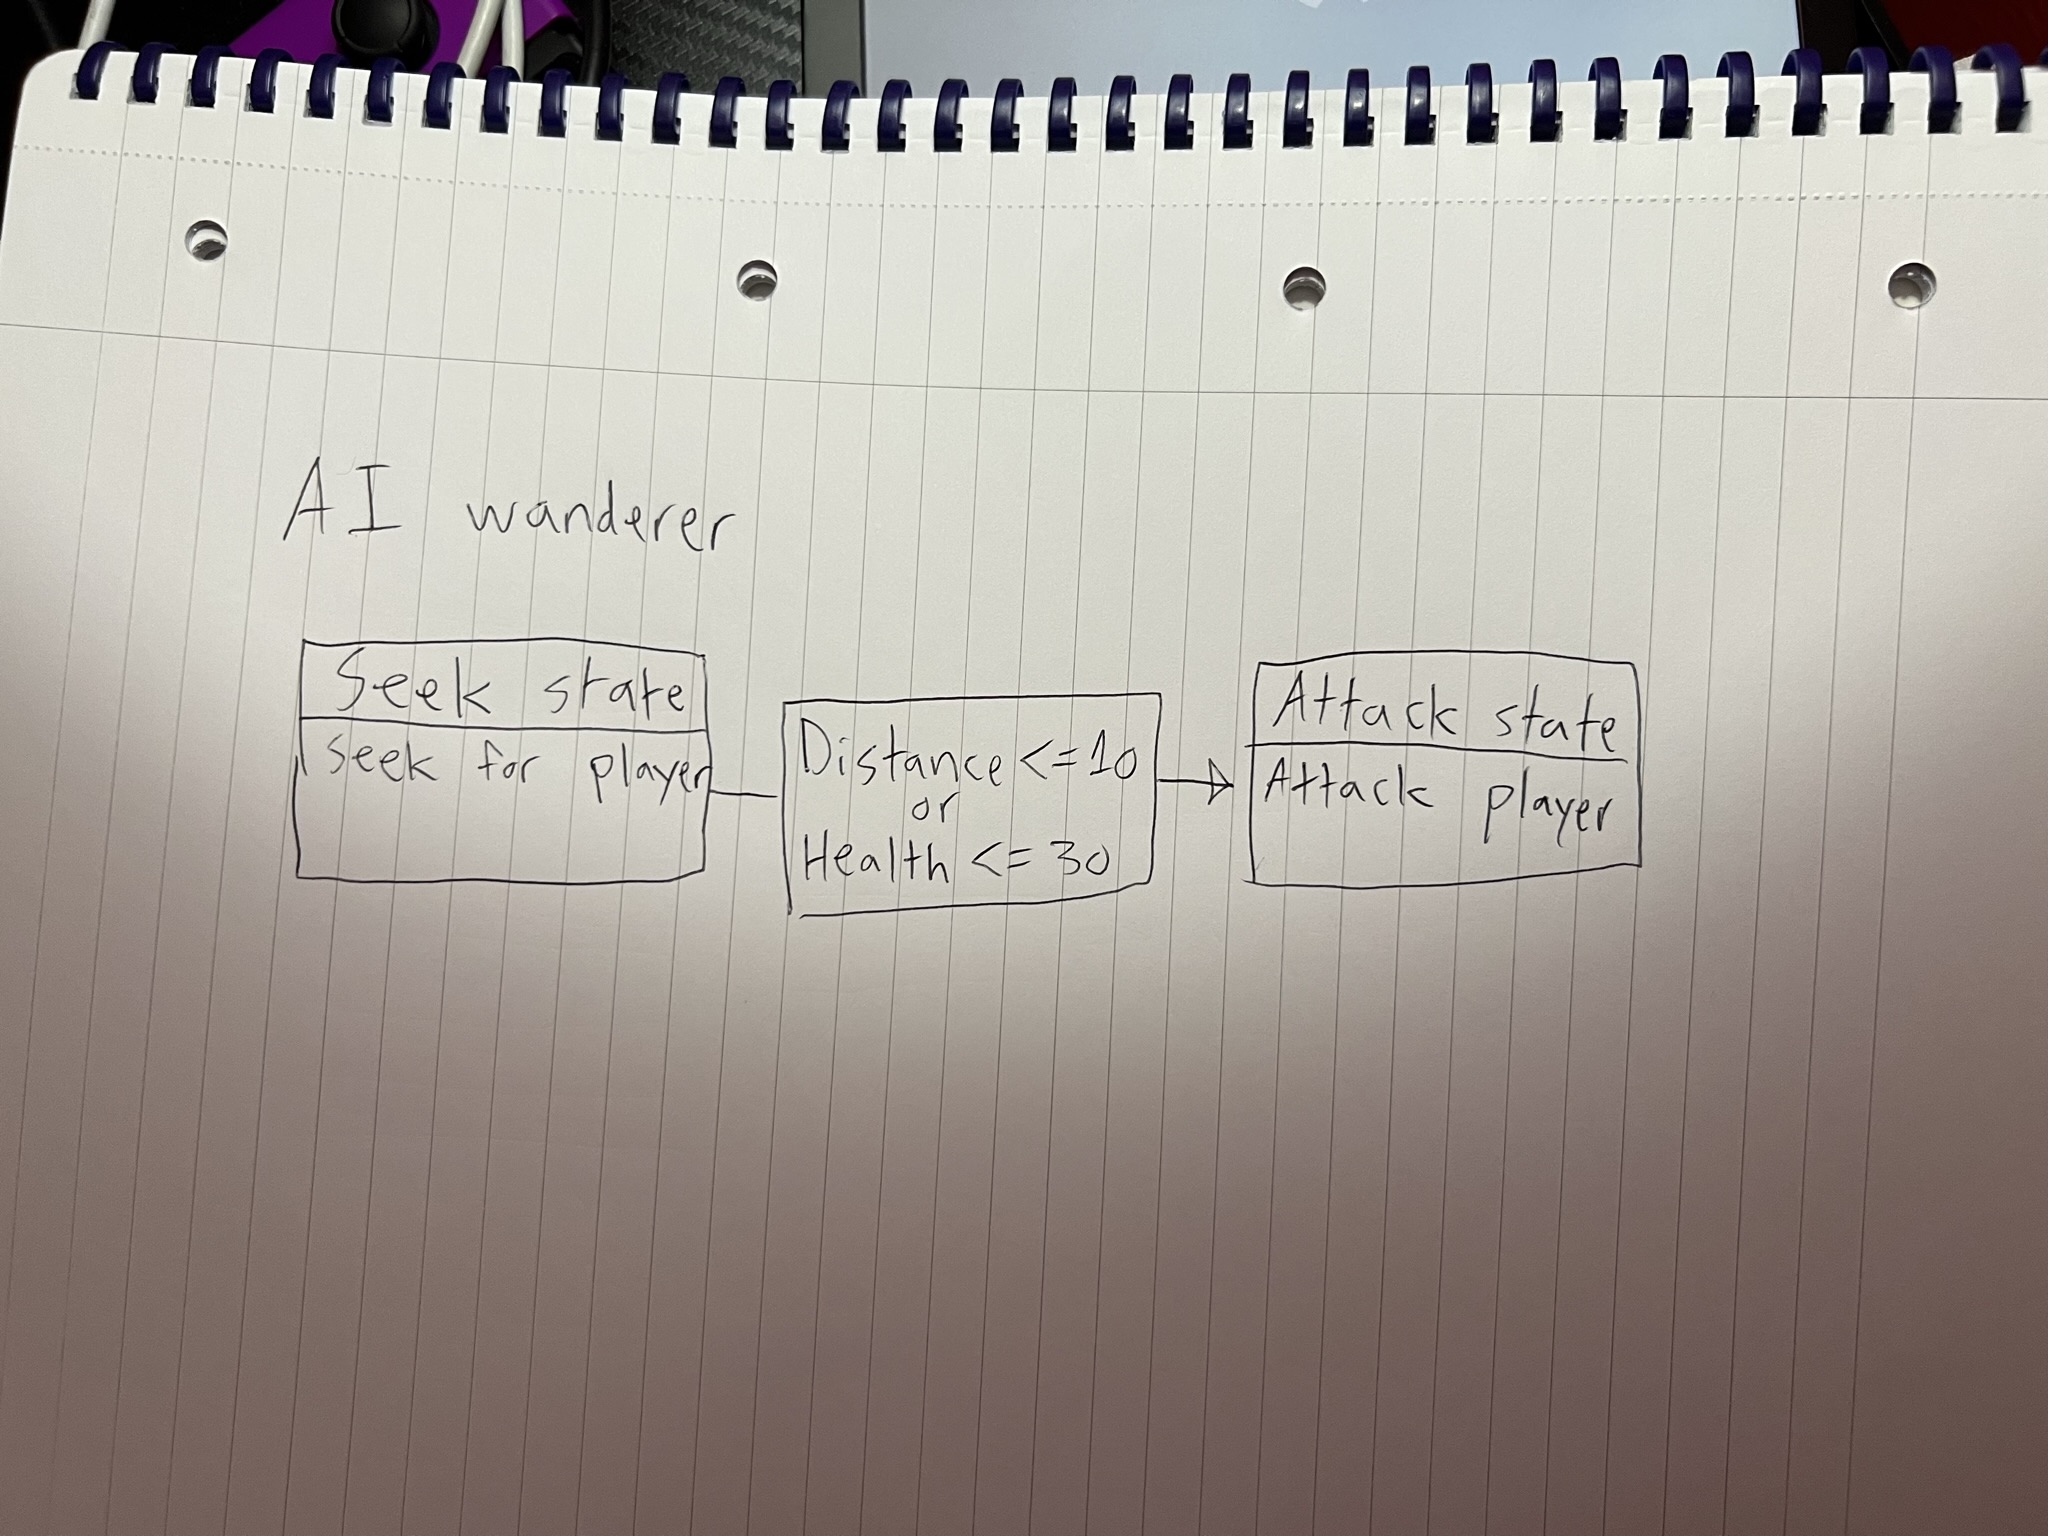 AI wanderer
Seek state
seek for player
Distance <= 10
or
Health <= 30
Attack state
Attack player